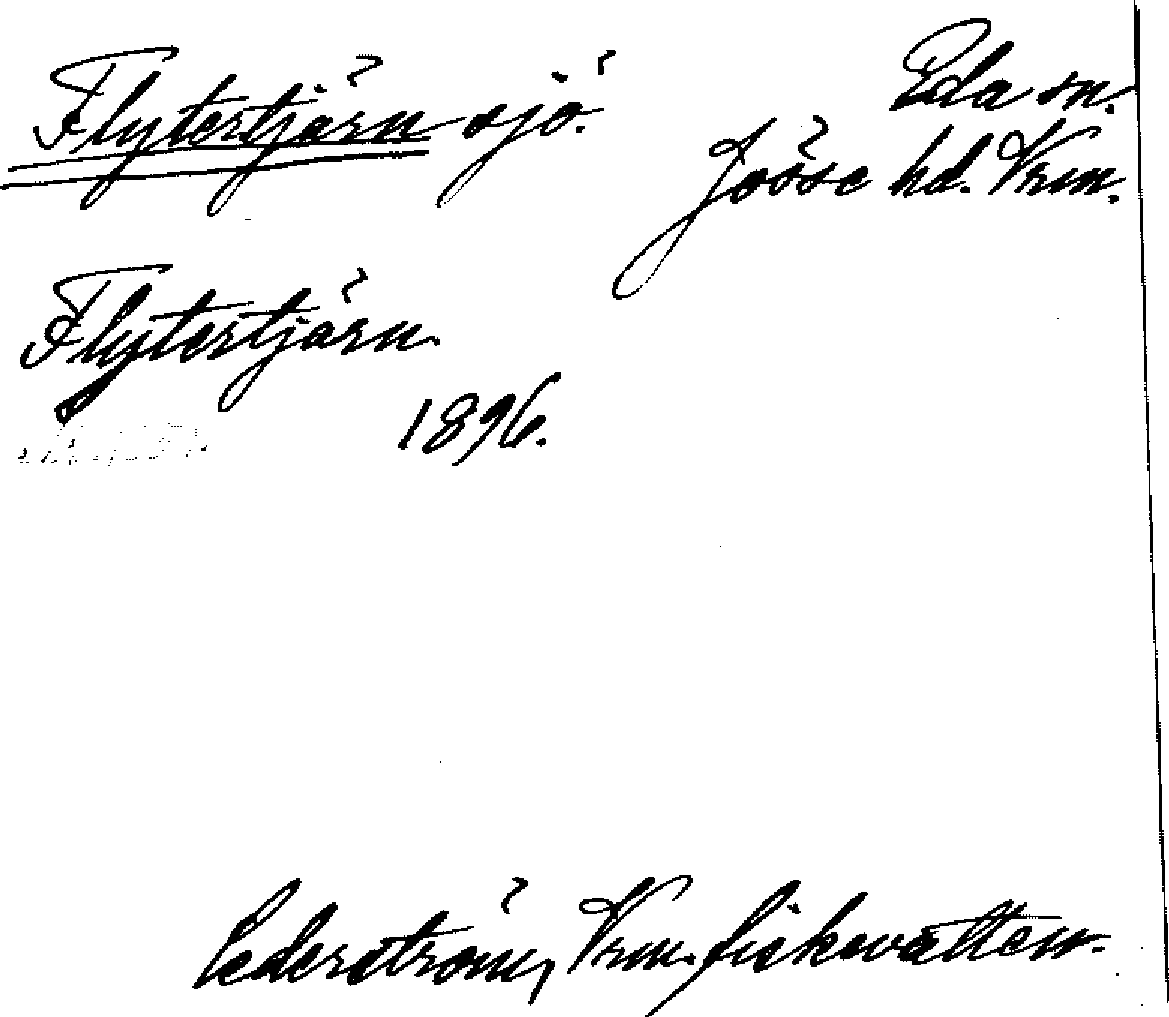 Flytertjärn sjö.
Eda sn.
Jösse hd. Vrm.
Flytertjärn
1896.
Cederström, Vrm. fiskevatten.